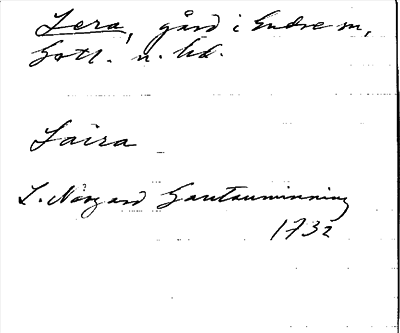 Lera, gård i Endre sn,
Gotl. n. hd.
Laira
L. Nårgard Gautauminning
1732